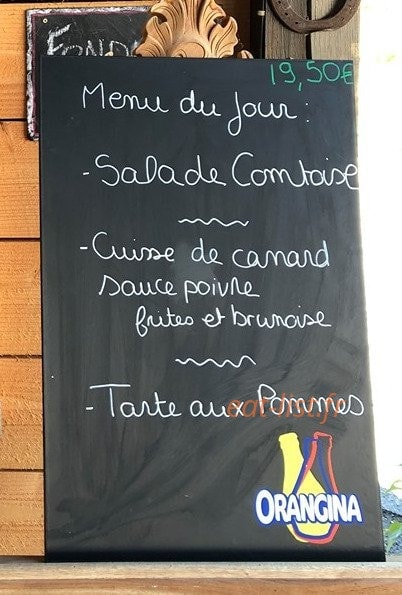 19,50€
Menu du Jour :
- Salade Comtoise
- Cuisse de canard
sauce poivre
frites et brunoise
- Tarte aux Pommes
ORANGINA